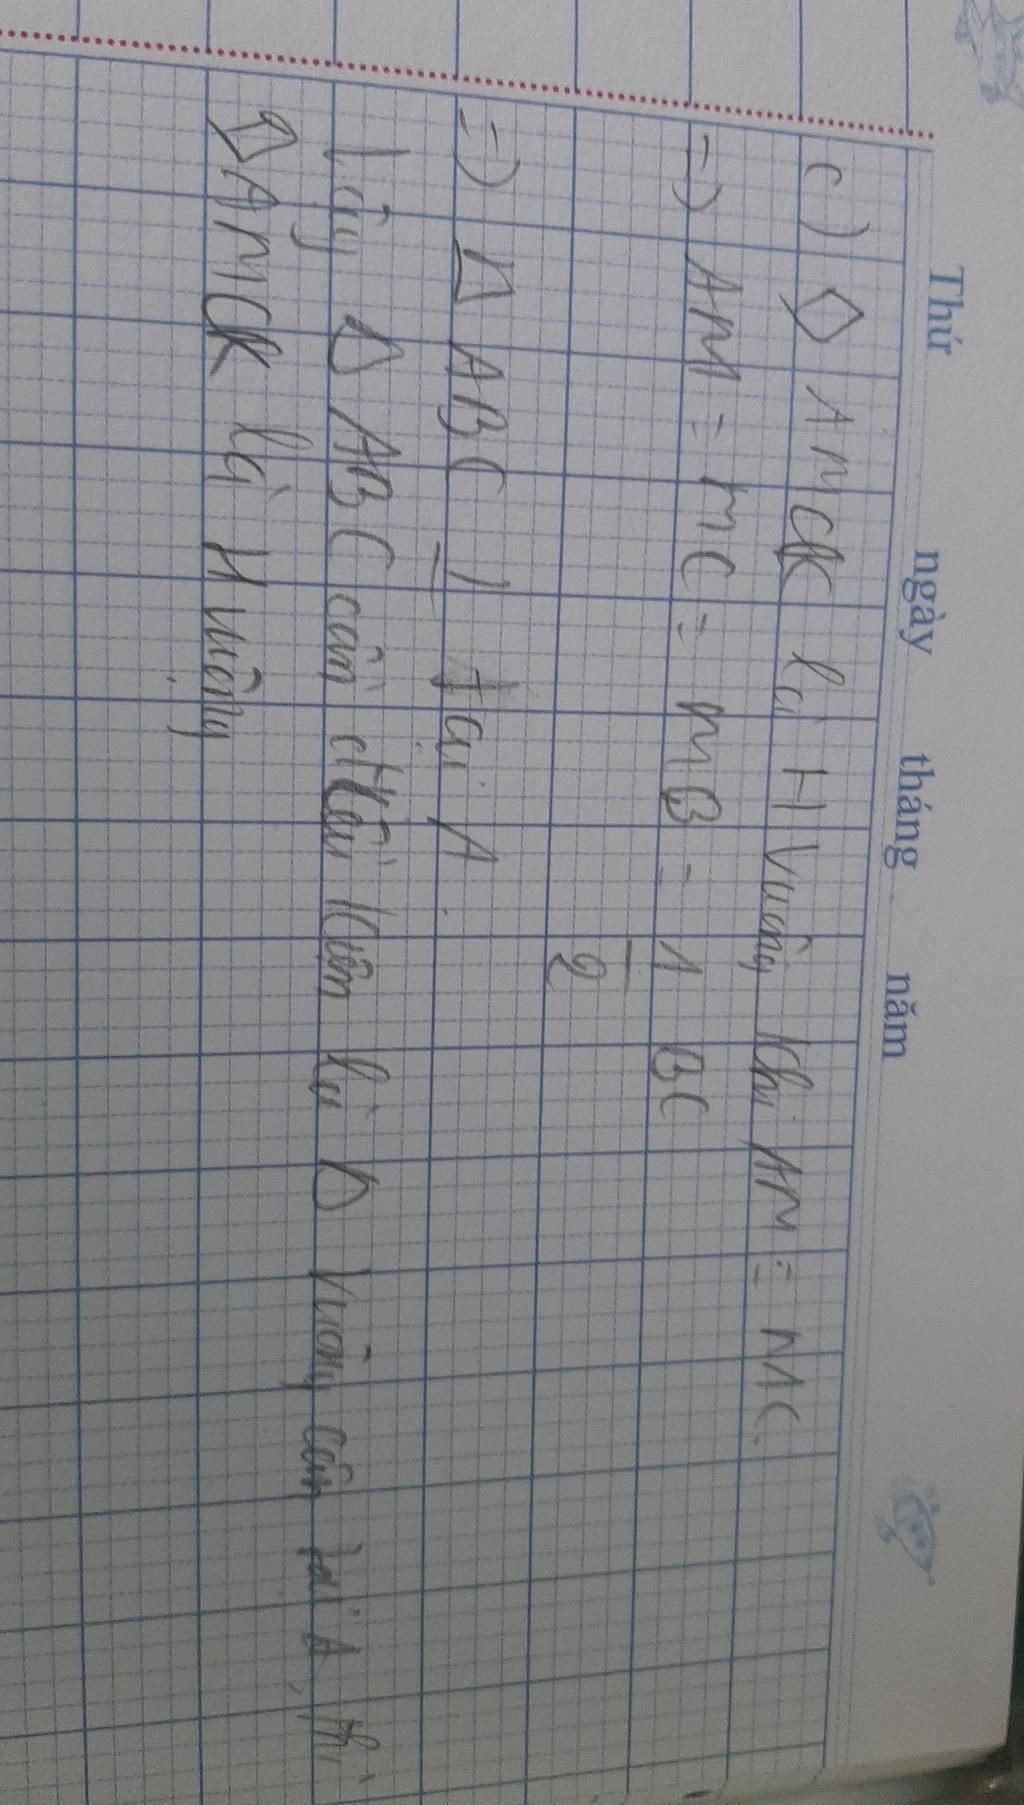 Thứ ngày tháng năm
c) ◇ AMCK là H Vuông khi AM = MC.
=) AM = MC = MB = 1/2 BC
=) △ ABC ⊥ tại A.
Vậy △ ABC cần điều kiện là △ vuông cân tại A, thì
◇ AMCK là H vuông